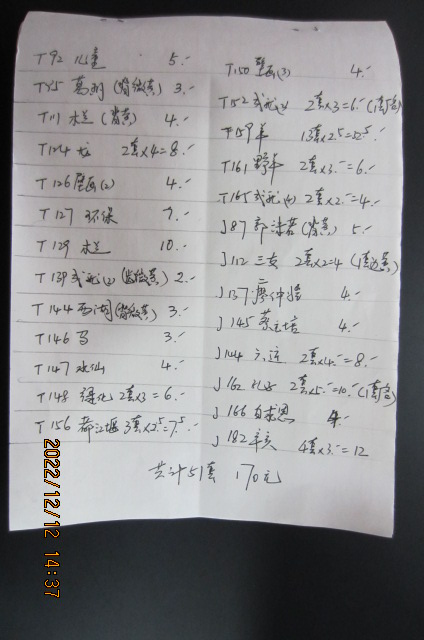 T92 儿童 5.-
T45 葛洲(背微黄) 3.-
T111 水兰(背黄) 4.-
T124 龙 2套×4=8.-
T126 壁画(2) 4.-
T127 环保 7.-
T129 水兰 10.-
T139 武元(2)(背微黄) 2.-
T144 西湖(背微黄) 3.-
T146 马 3.-
T147 水仙 4.-
T148 绿化 2套×3=6.-
T156 都江堰 3套×2.5=7.5.-
T150 壁画(3) 4.-
T152 武元(3) 2套×3=6.-
T159 羊 13套
T161 野羊 2套×3.-=6.-
T165 武元(4) 2套×2.-=4.-
J87 郭沫若(背黄) 5.-
J112 三女 2套×2=4 (1套边黄)
J137 廖仲恺 4.-
J145 蔡元培 4.-
J144 六运 2套×4.-=8.-
J162 2套×5.-=10.-
J166 白求恩 4.-
J182 辛亥 4套×3.-=12
共计51套 170元
2022/12/12 14:37